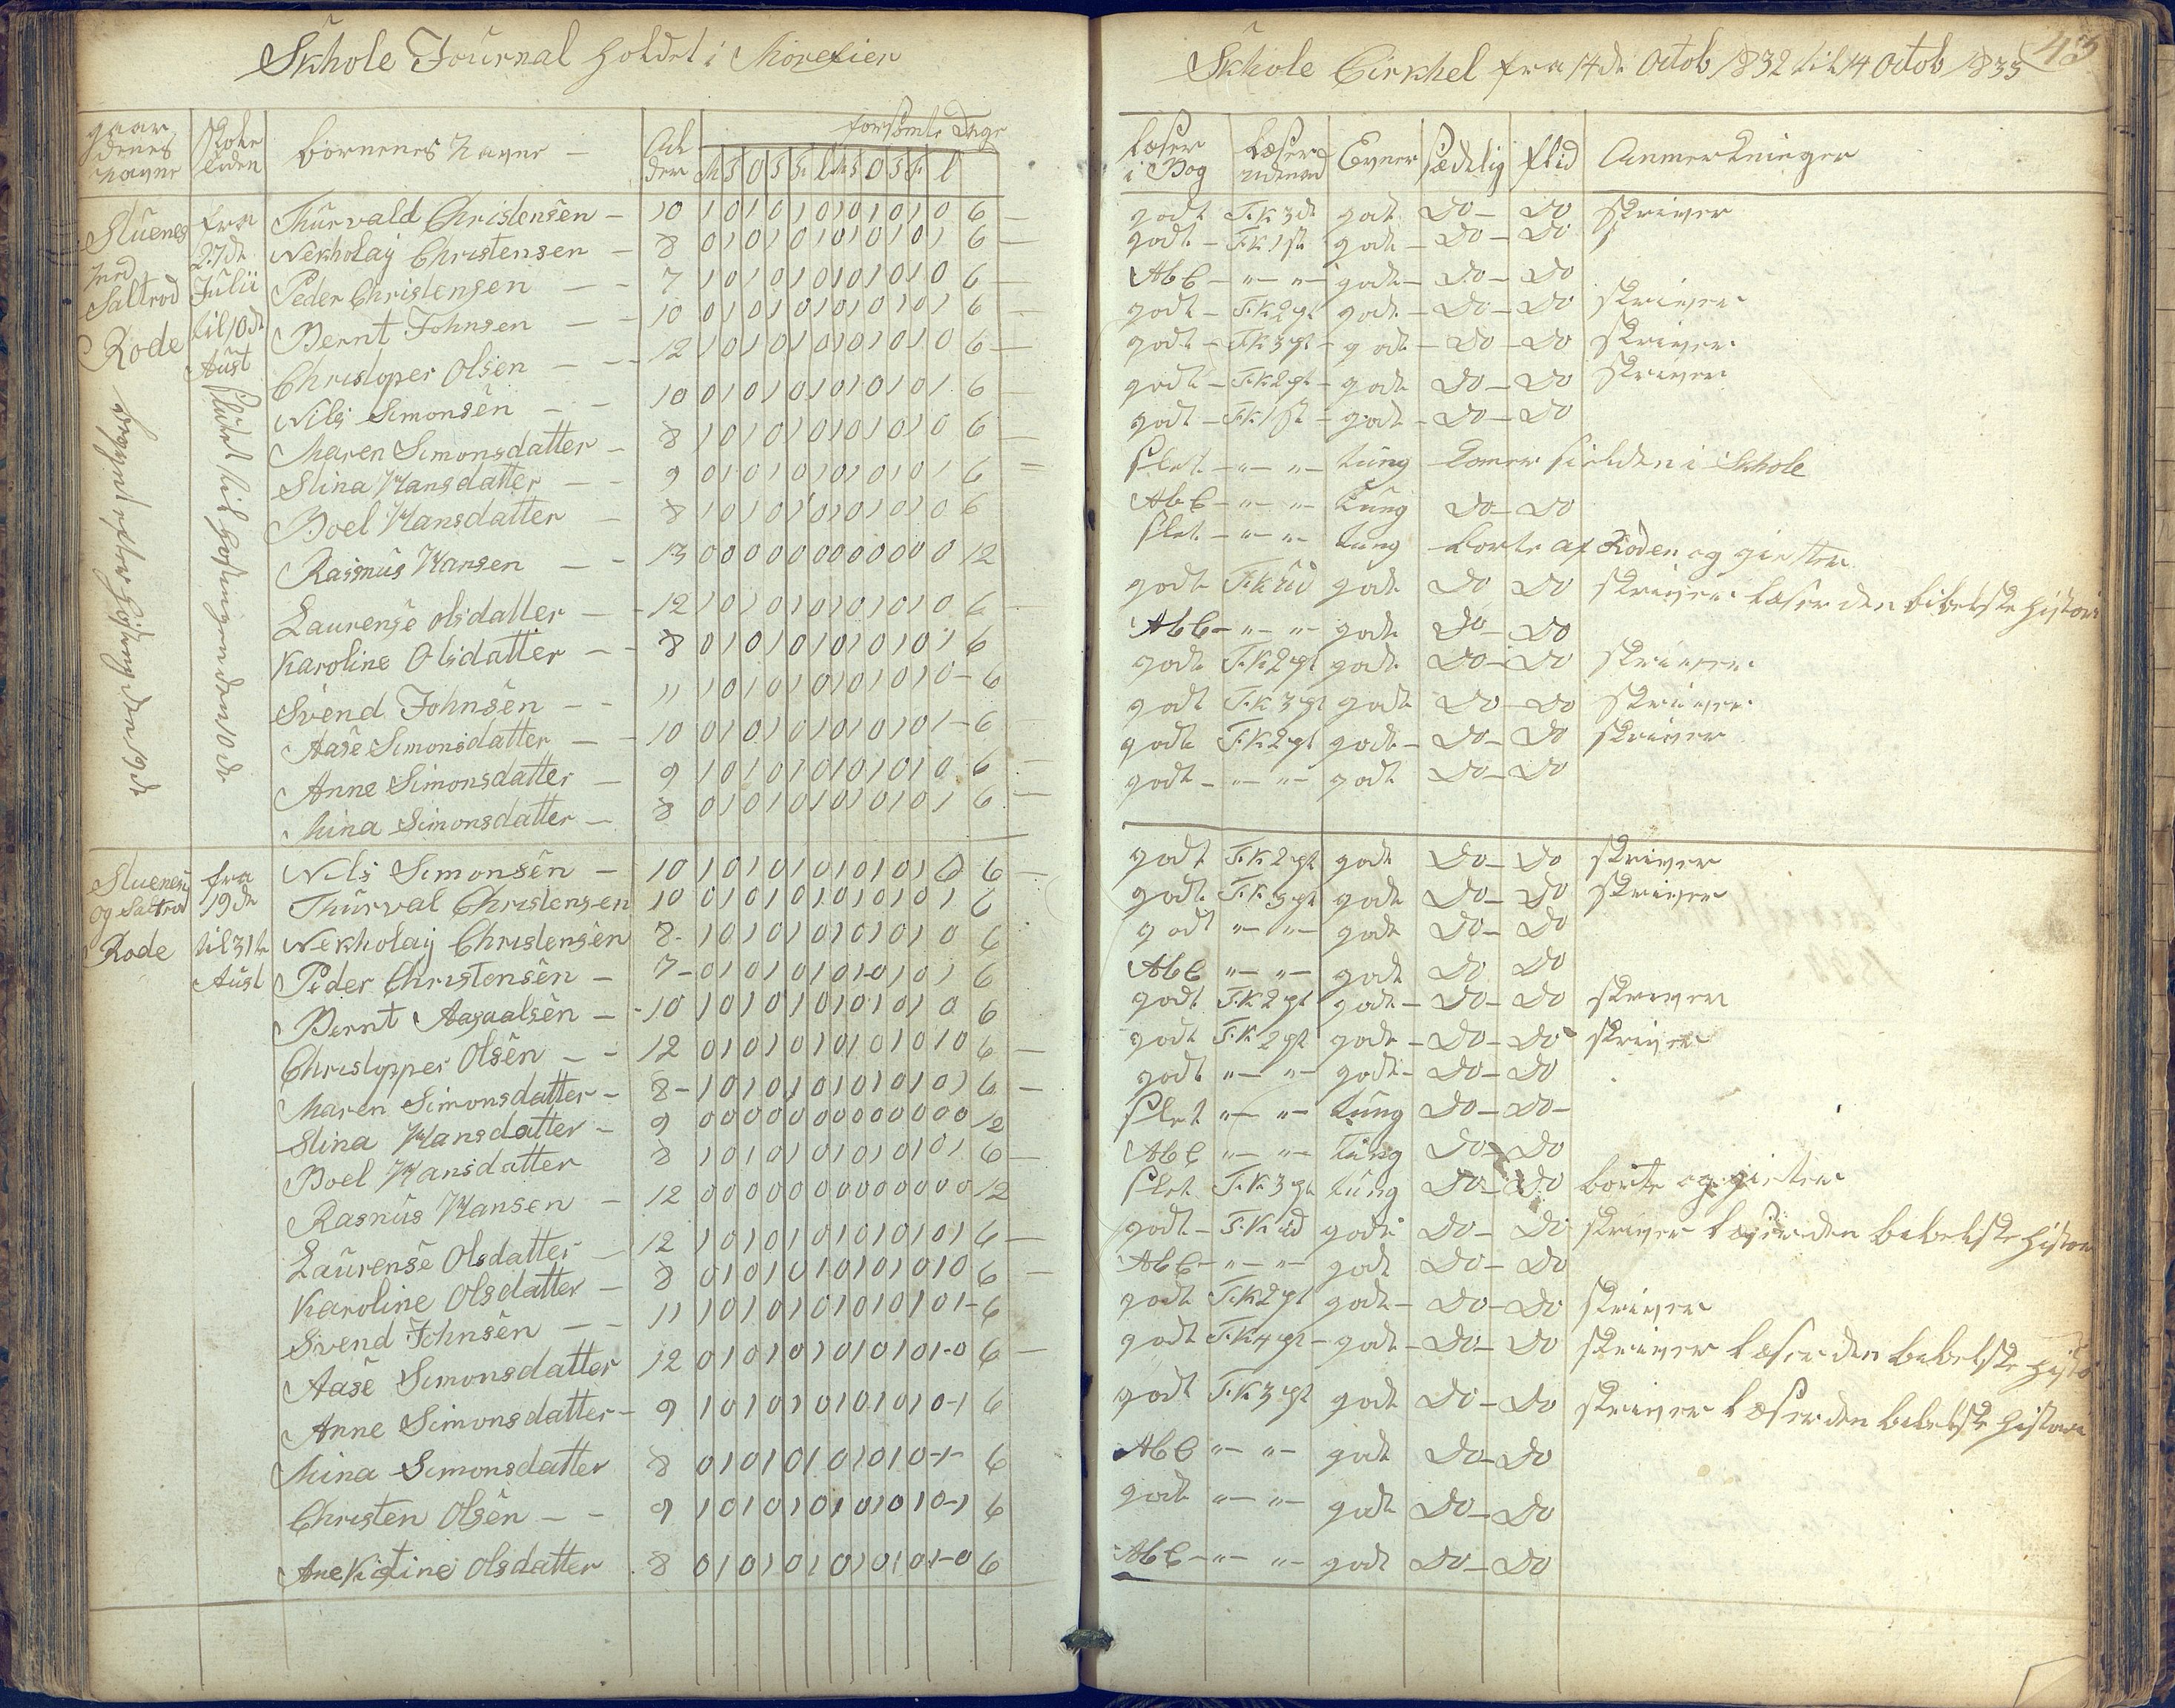 Skhole Journal holdet i Morefier
Skhole Cirkhel fra 14de Octob 1832 til 14 Octob 1833
43
gaardenes navne | Skoletiden | børnenes Navne | Alder | forsømte Dage
M T O T F L M T O T F L
Læser i Bog | Læser udenad | Evner | Sædelig | flid | Anmerkninger
Stuenes med Saltrød Rode
fra 27de Julii til 10de Aust
Thurvald Christensen – 10 1 0 1 0 1 0 1 0 1 0 1 0 6 – godt T.K 3dt godt Do – Do skriver
Nekholaij Christensen – 8 0 1 0 1 0 1 0 1 0 1 0 1 6 – godt – T.K 1st godt – Do – Do
Peder Christensen – – 7 1 0 1 0 1 0 1 0 1 0 1 0 6 – AbC – " – " – godt – Do – Do
Bernt Johnsen – – 10 0 1 0 1 0 1 0 1 0 1 0 1 6 – godt – T.K 2pt godt – Do – Do skriver
Christoper Olsen – – 12 1 0 1 0 1 0 1 0 1 0 1 0 6 – godt – T.K 3pt – godt – Do – Do skriver
Nils Simonsen – – 10 0 1 0 1 0 1 0 1 0 1 0 1 6 – godt – T.K 2pt – godt Do – Do skriver
Maren Simonsdatter – 8 1 0 1 0 1 0 1 0 1 0 1 0 6 – godt – T.K 1st – godt – Do – Do
Stina Hansdatter – – 9 0 1 0 1 0 1 0 1 0 1 0 1 6 – slet – " – " – tung komer sielden i Skhole
Boel Hansdatter – 8 1 0 1 0 1 0 1 0 1 0 1 0 6 AbC – " – " – tung Do – Do
Rasmus Hansen – – 13 0 0 0 0 0 0 0 0 0 0 0 0 12 slet – " – " – tung borte af Roden og gietter
Laurense Olsdatter – – 12 1 0 1 0 1 0 1 0 1 0 1 0 6 – godt T.K ud godt Do Do skriver læser den bibelske Histori
Karoline Olsdatter – – 8 0 1 0 1 0 1 0 1 0 1 0 1 6 AbC – " – " – godt Do – Do
Svend Johnsen – – 11 1 0 1 0 1 0 1 0 1 0 1 0 – 6 godt T.K 2pt godt Do – Do skriver
Aase Simonsdatter – – 10 0 1 0 1 0 1 0 1 0 1 0 1 – 6 godt T.K 3pt godt Do – Do skriver
Anne Simonsdatter – 9 1 0 1 0 1 0 1 0 1 0 1 0 6 – godt T.K 2pt godt – Do – Do skriver
Mina Simonsdatter – 8 0 1 0 1 0 1 0 1 0 1 0 1 6 – godt – " – " – godt Do – Do
Stuenes og Saltrød Rode
fra 19de til 31te Aust
Nils Simonsen – 10 1 0 1 0 1 0 1 0 1 0 1 0 6 – godt T.K 2pt godt Do – Do skriver
Thurval Christensen 10 0 1 0 1 0 1 0 1 0 1 0 1 6 godt T.K 3pt godt Do – Do skriver
Nekholaij Christensen 8 – 1 0 1 0 1 0 1 0 1 0 1 0 6 godt " – " – godt Do – Do
Peder Christensen – 7 – 0 1 0 1 0 1 0 1 0 1 0 1 6 AbC " – " – godt Do Do
Bernt Aagaalsen – – 10 1 0 1 0 1 0 1 0 1 0 1 0 6 godt T.K 2pt godt – Do – Do skriver
Christopper Olsen – – 12 0 1 0 1 0 1 0 1 0 1 0 1 0 6 – godt T.K 2pt godt – Do – Do skriver
Maren Simonsdatter – 8 – 1 0 1 0 1 0 1 0 1 0 1 0 1 6 – godt " – " – godt – Do – Do
Stina Hansdatter – 9 0 0 0 0 0 0 0 0 0 0 0 0 12 slet " – " – tung Do – Do –
Boel Hansdatter 8 1 0 1 0 1 0 1 0 1 0 1 0 1 6 – AbC " – " – tung Do – Do
Rasmus Hansen – 12 0 0 0 0 0 0 0 0 0 0 0 0 12 slet T.K 3pt tung Do – Do borte og gietter
Laurense Olsdatter – 12 1 0 1 0 1 0 1 0 1 0 1 0 1 6 – godt – T.K ud godt Do – Do skriver læser den bibelske Histori
Karoline Olsdatter – 8 0 1 0 1 0 1 0 1 0 1 0 1 0 6 – AbC – " – " – godt Do – Do
Svend Johnsen – – 11 1 0 1 0 1 0 1 0 1 0 1 0 1 – 6 godt T.K 2pt godt – Do – Do skriver
Aase Simonsdatter 12 0 1 0 1 0 1 0 1 0 1 0 1 – 0 6 – godt T.K 4pt – godt – Do – Do skriver læser den bibelske Histo
Anne Simonsdatter – 9 1 0 1 0 1 0 1 0 1 0 1 0 – 1 6 godt T.K 3pt godt Do – Do skriver læser den bibelske Histori
Mina Simonsdatter 8 0 1 0 1 0 1 0 1 0 1 0 – 1 – 6 AbC " – " – godt Do – Do
Christen Olsen – – 9 1 0 1 0 1 0 1 0 1 0 1 0 – 1 6 godt " – " – godt Do – Do
Ane Kistine Olsdatter 8 0 1 0 1 0 1 0 1 0 1 0 1 – 0 6 AbC – " – " – godt Do – Do